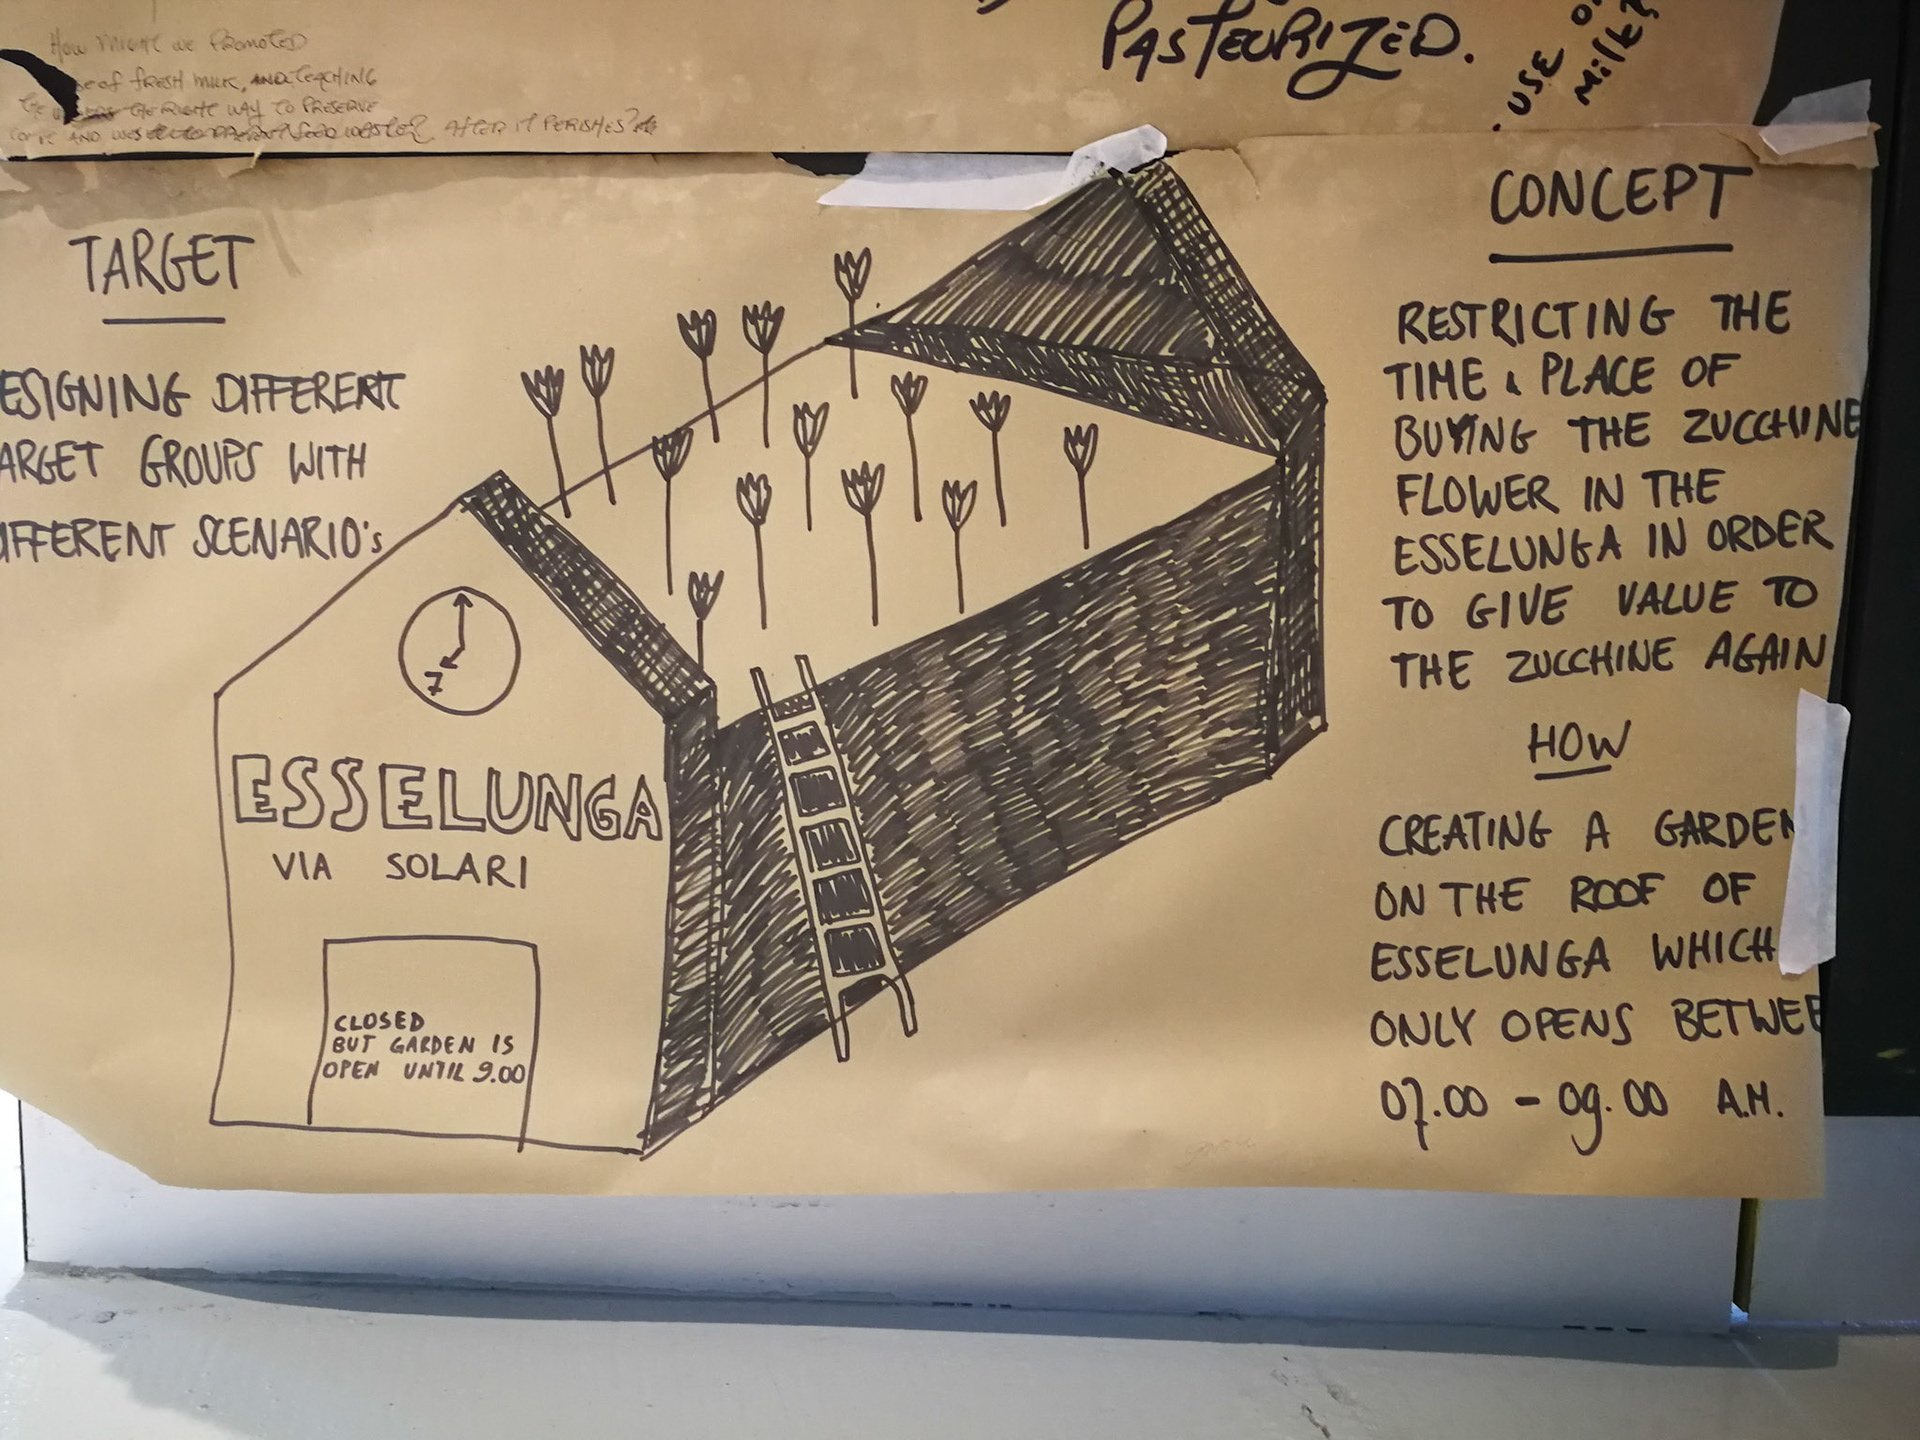 How might we promoted
of fresh milk, and teaching
the right way to preserve
AND AFTER IT PERISHES?
PASTEURIZED.
USE
Milk?
TARGET
ESIGNING DIFFERENT
ARGET GROUPS WITH
IFFERENT SCENARIO's
7
ESSELUNGA
VIA SOLARI
CLOSED
BUT GARDEN IS
OPEN UNTIL 9.00
CONCEPT
RESTRICTING THE
TIME & PLACE OF
BUYING THE ZUCCHINE
FLOWER IN THE
ESSELUNGA IN ORDER
TO GIVE VALUE TO
THE ZUCCHINE AGAIN
HOW
CREATING A GARDEN
ON THE ROOF OF
ESSELUNGA WHICH
ONLY OPENS BETWEE
07.00 - 09.00 A.M.